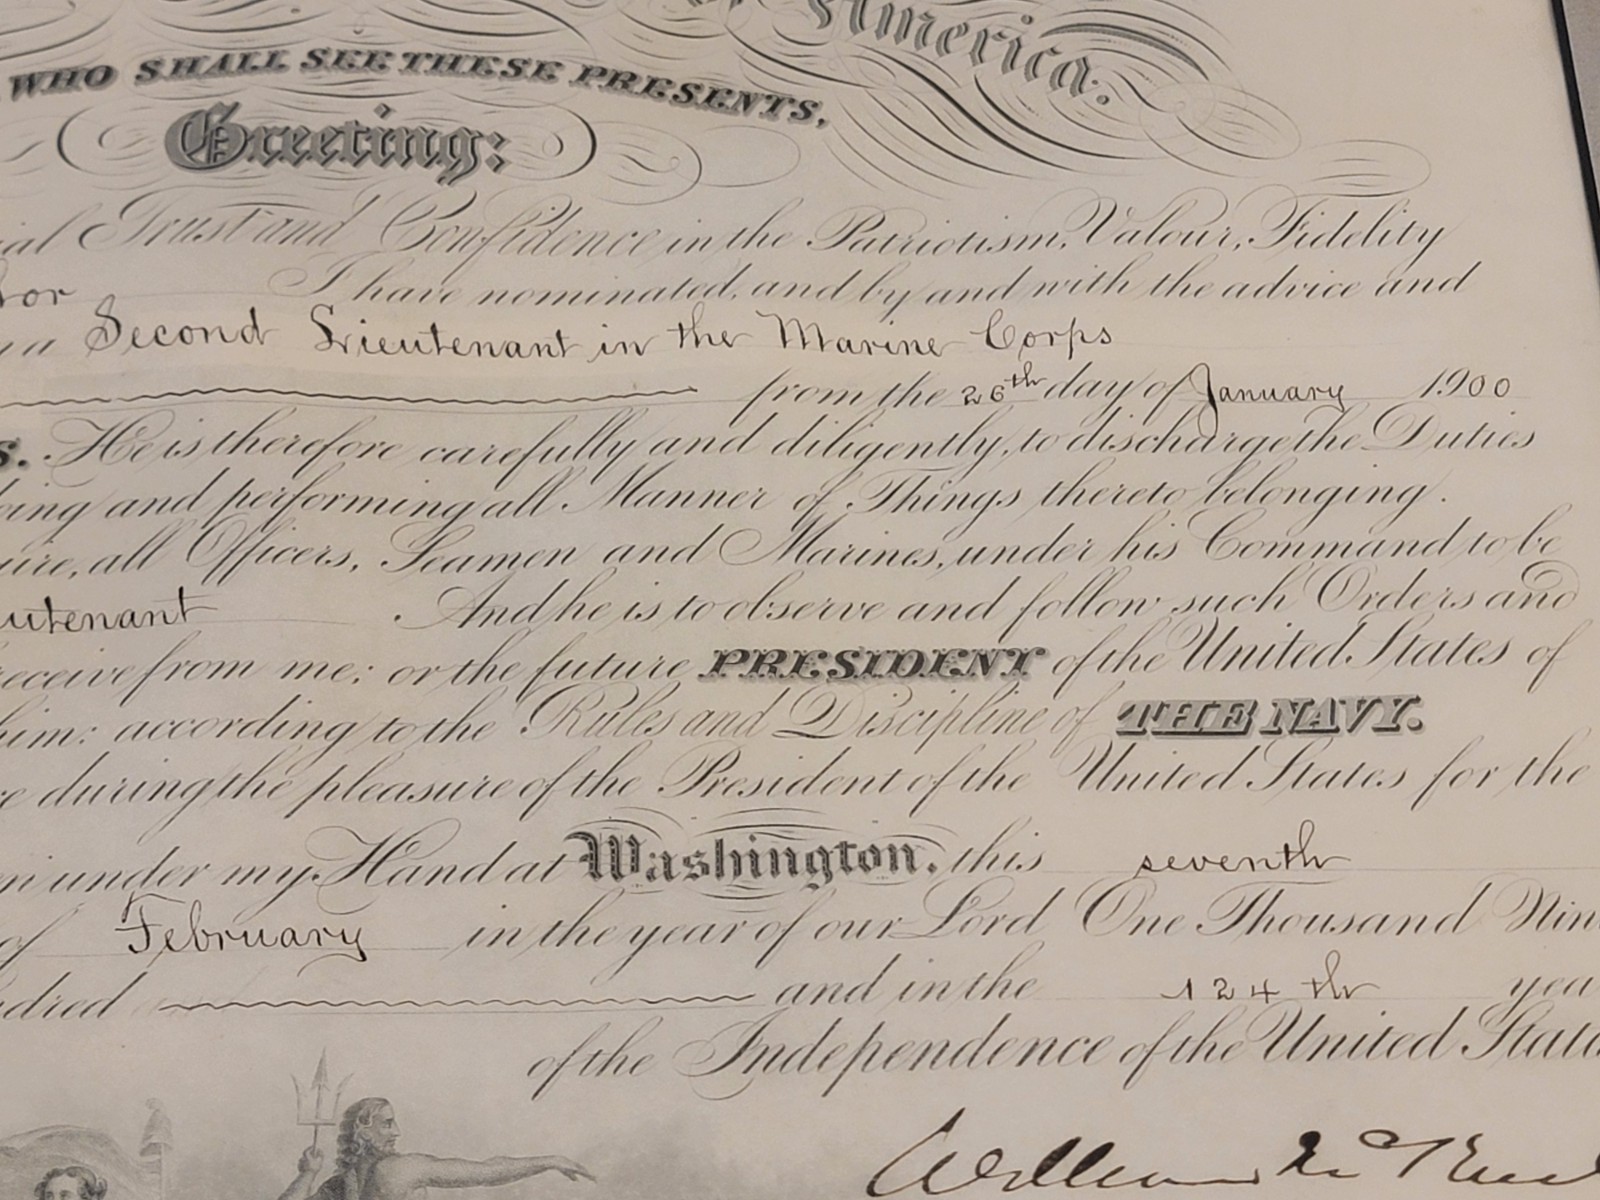 America.
WHO SHALL SEE THESE PRESENTS,
Greeting:
ial Trust and Confidence in the Patriotism, Valour, Fidelity
I have nominated, and by and with the advice and
a Second Lieutenant in the Marine Corps
from the 26th day of January 1900
s. He is therefore carefully and diligently, to discharge the Duties
oing and performing all Manner of Things thereto belonging.
uire, all Officers, Seamen and Marines, under his Command to be
eutenant . And he is to observe and follow such Orders and
receive from me; or the future PRESIDENT of the United States of
him: according to the Rules and Discipline of THE NAVY.
e during the pleasure of the President of the United States for the
n under my Hand at Washington, this seventh
of February in the year of our Lord One Thousand Nin
ndred and in the 124th yea
of the Independence of the United State
William McKinl